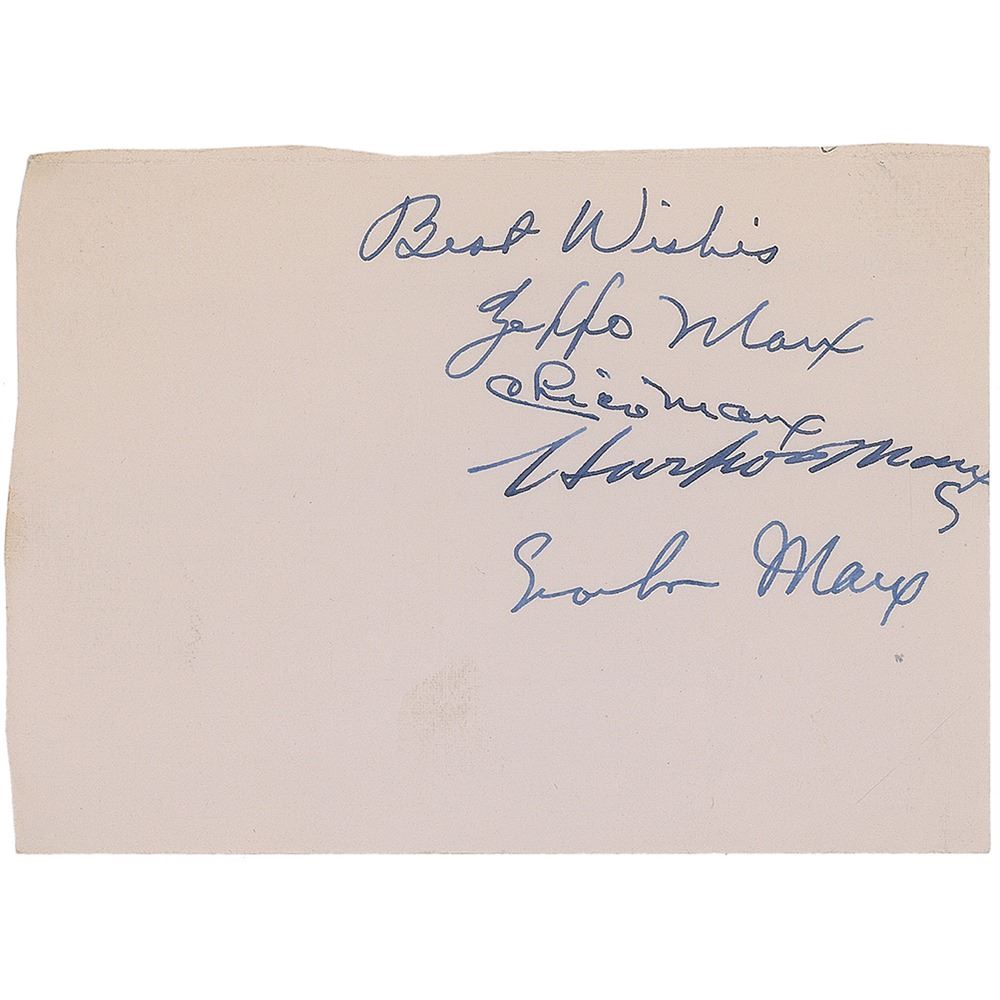 Best Wishes
Zeppo Marx
Chico Marx
Harpo Marx
Groucho Marx